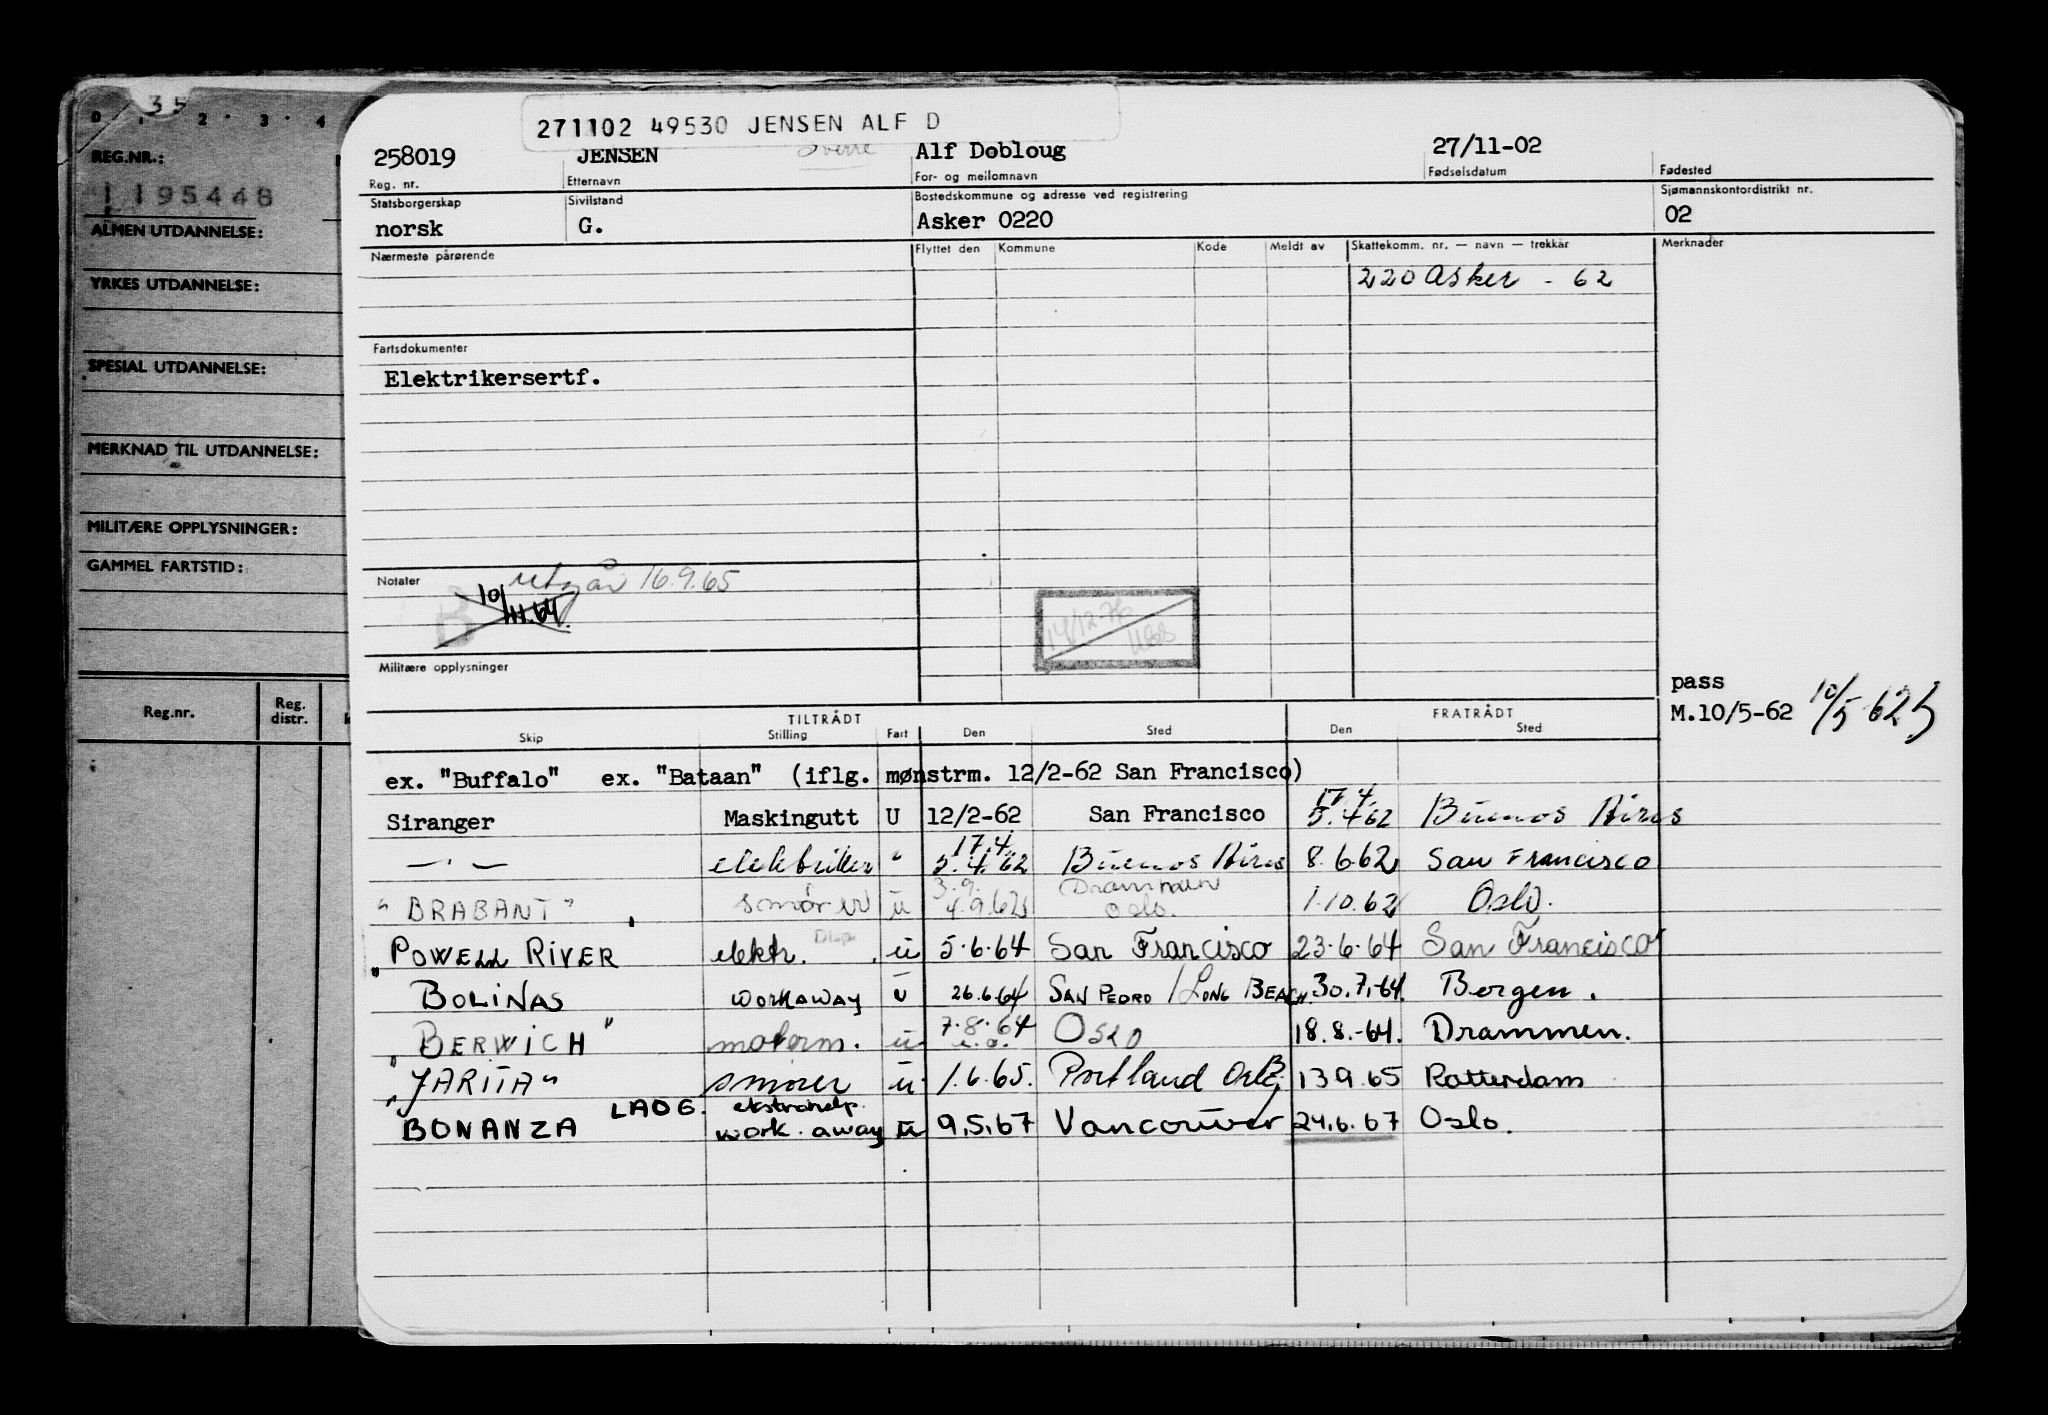 35
0 . 2 . 3 . 4
REG.NR.:
1195448
ALMEN UTDANNELSE:
YRKES UTDANNELSE:
SPESIAL UTDANNELSE:
MERKNAD TIL UTDANNELSE:
MILITÆRE OPPLYSNINGER:
GAMMEL FARTSTID:
Reg.nr. Reg. distr.
271102 49530 JENSEN ALF D
258019 JENSEN Sverre Alf Dobloug 27/11-02
Reg. nr. Etternavn For- og mellomnavn Fødselsdatum Fødested
Statsborgerskap Sivilstand Bostedskommune og adresse ved registrering Sjømannskontordistrikt nr.
norsk G. Asker 0220 02
Nærmeste pårørende Flyttet den Kommune Kode Meldt av Skattekomm. nr. — navn — trekkår Merknader
220 Asker - 62
Fartsdokumenter
Elektrikersertf.
Notater utgår 16.9.65
B 10/11.64.
14/12-76
Militære opplysninger
pass
M.10/5-62 10/5 62
TILTRÅDT FRATRÅDT
Skip Stilling Fart Den Sted Den Sted
ex. "Buffalo" ex. "Bataan" (iflg. mønstrm. 12/2-62 San Francisco)
17.4
Siranger Maskingutt U 12/2-62 San Francisco 5.4.62 Buenos Aires
17.4.
— " — elektriker " 5.4.62 Buenos Aires 8.6.62 San Francisco
3.9. Drammen
"BRABANT" smører u 4.9.62 Oslo. 1.10.62 Oslo.
Disp
"POWELL RIVER elektr. u 5.6.64 San Francisco 23.6.64 San Francisco
BOLINAS workaway u 26.6.64 SAN PEDRO / LONG BEACH 30.7.64. Bergen.
"BERWICH" motorm. u 7.8.64 Oslo 18.8.-64. Drammen.
"JARITA" smører u 1.6.65. Portland 13 9.65 Rotterdam
LADE. ekstrahelp.
BONANZA work. away u 9.5.67 Vancouver 24.6.67 Oslo.